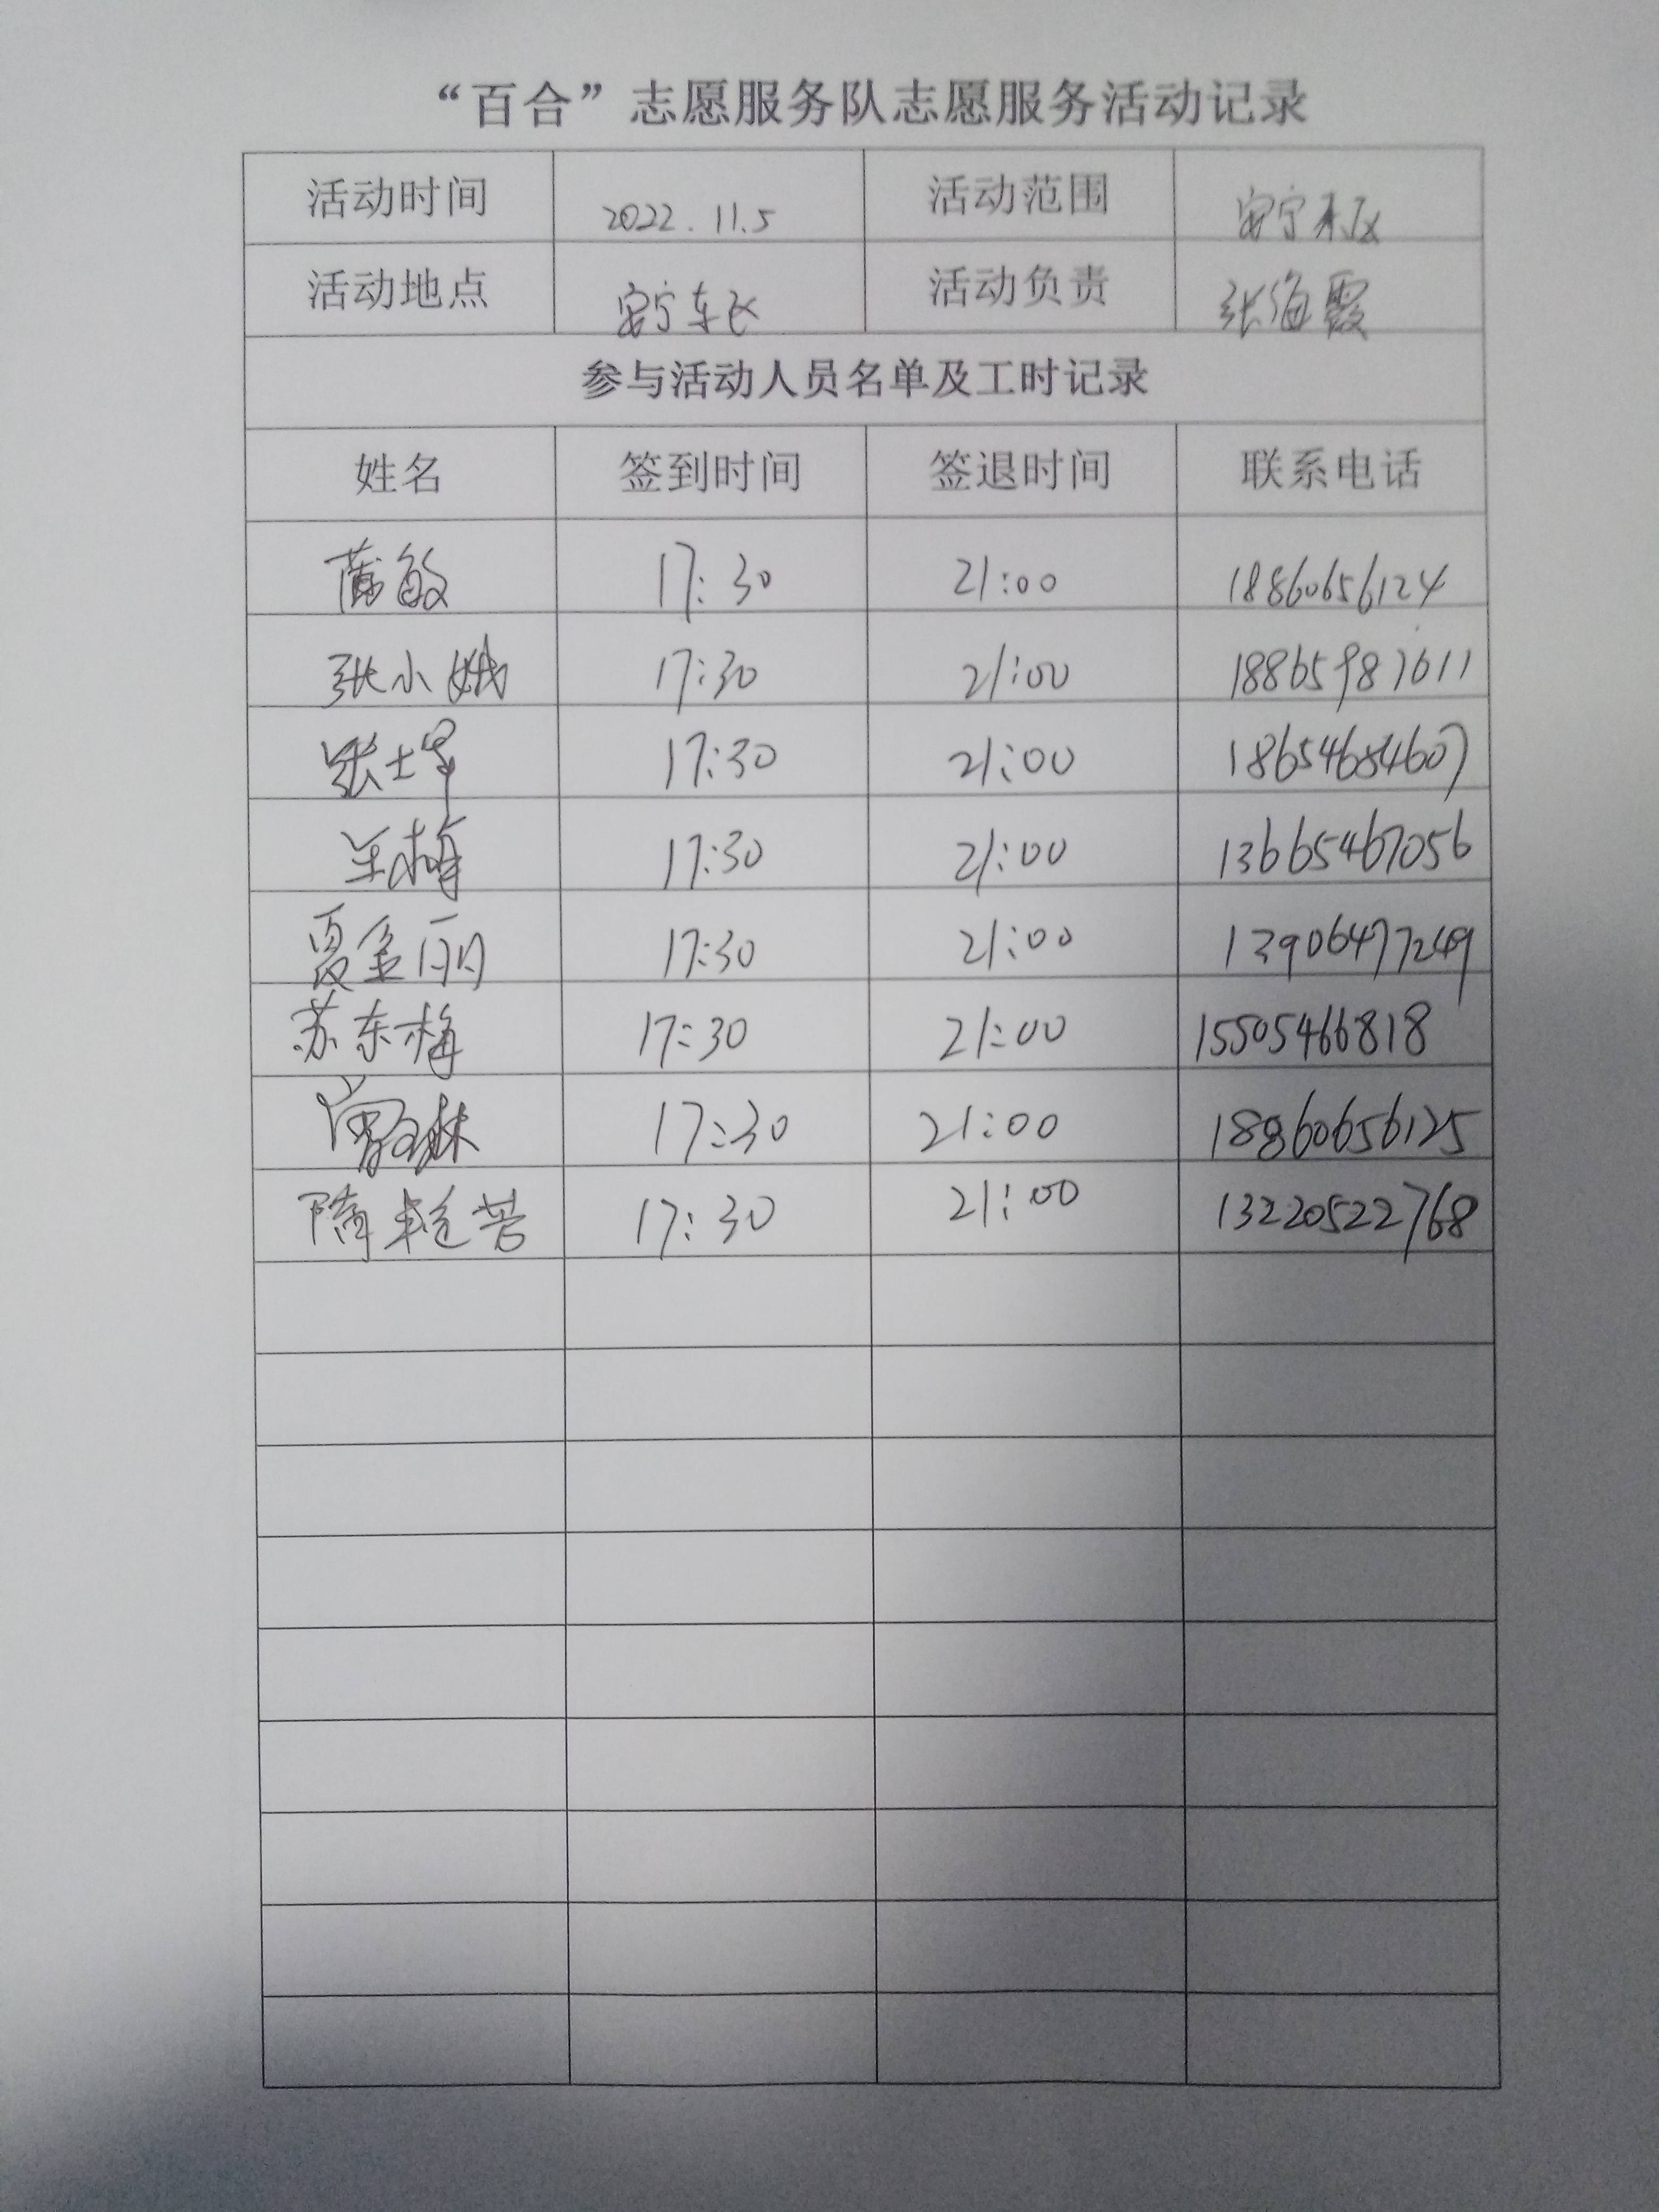 “百合”志愿服务队志愿服务活动记录
活动时间 2022.11.5 活动范围 安宁东区
活动地点 安宁东区 活动负责 张海霞
参与活动人员名单及工时记录
姓名 签到时间 签退时间 联系电话
蒲敏 17:30 21:00 18860656124
张小娥 17:30 21:00 18865987611
17:30 21:00 18654654607
17:30 21:00 13665467056
夏金丽 17:30 21:00 13906477249
苏东梅 17:30 21:00 15505466818
17:30 21:00 18860656125
17:30 21:00 13220522768